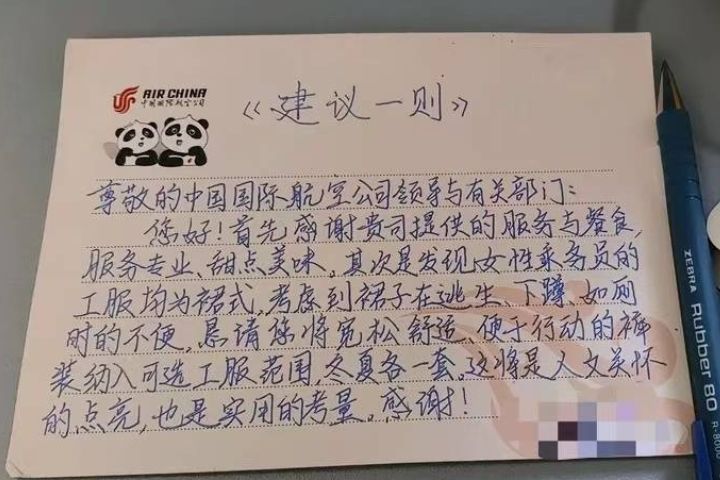 AIR CHINA
中国国际航空公司
《建议一则》
尊敬的中国国际航空公司领导与有关部门:
您好!首先感谢贵司提供的服务与餐食,
服务专业、甜点美味。其次是发现女性乘务员的
工服均为裙式,考虑到裙子在逃生、下蹲、如厕
时的不便,恳请您将宽松舒适、便于行动的裤
装纳入可选工服范围,冬夏各一套。这将是人文关怀
的点亮,也是实用的考量。感谢!
ZEBRA Rubber 80 R-8000